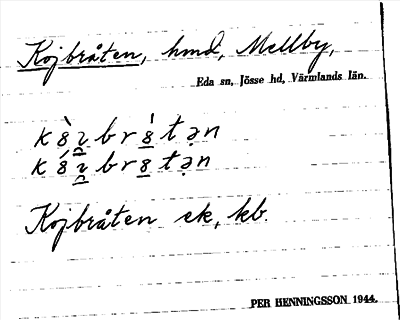 Kojbråten, hmd, Mellby,
Eda sn, Jösse hd, Värmlands län.
Kojbråten ek, kb.
PER HENNINGSSON 1944.